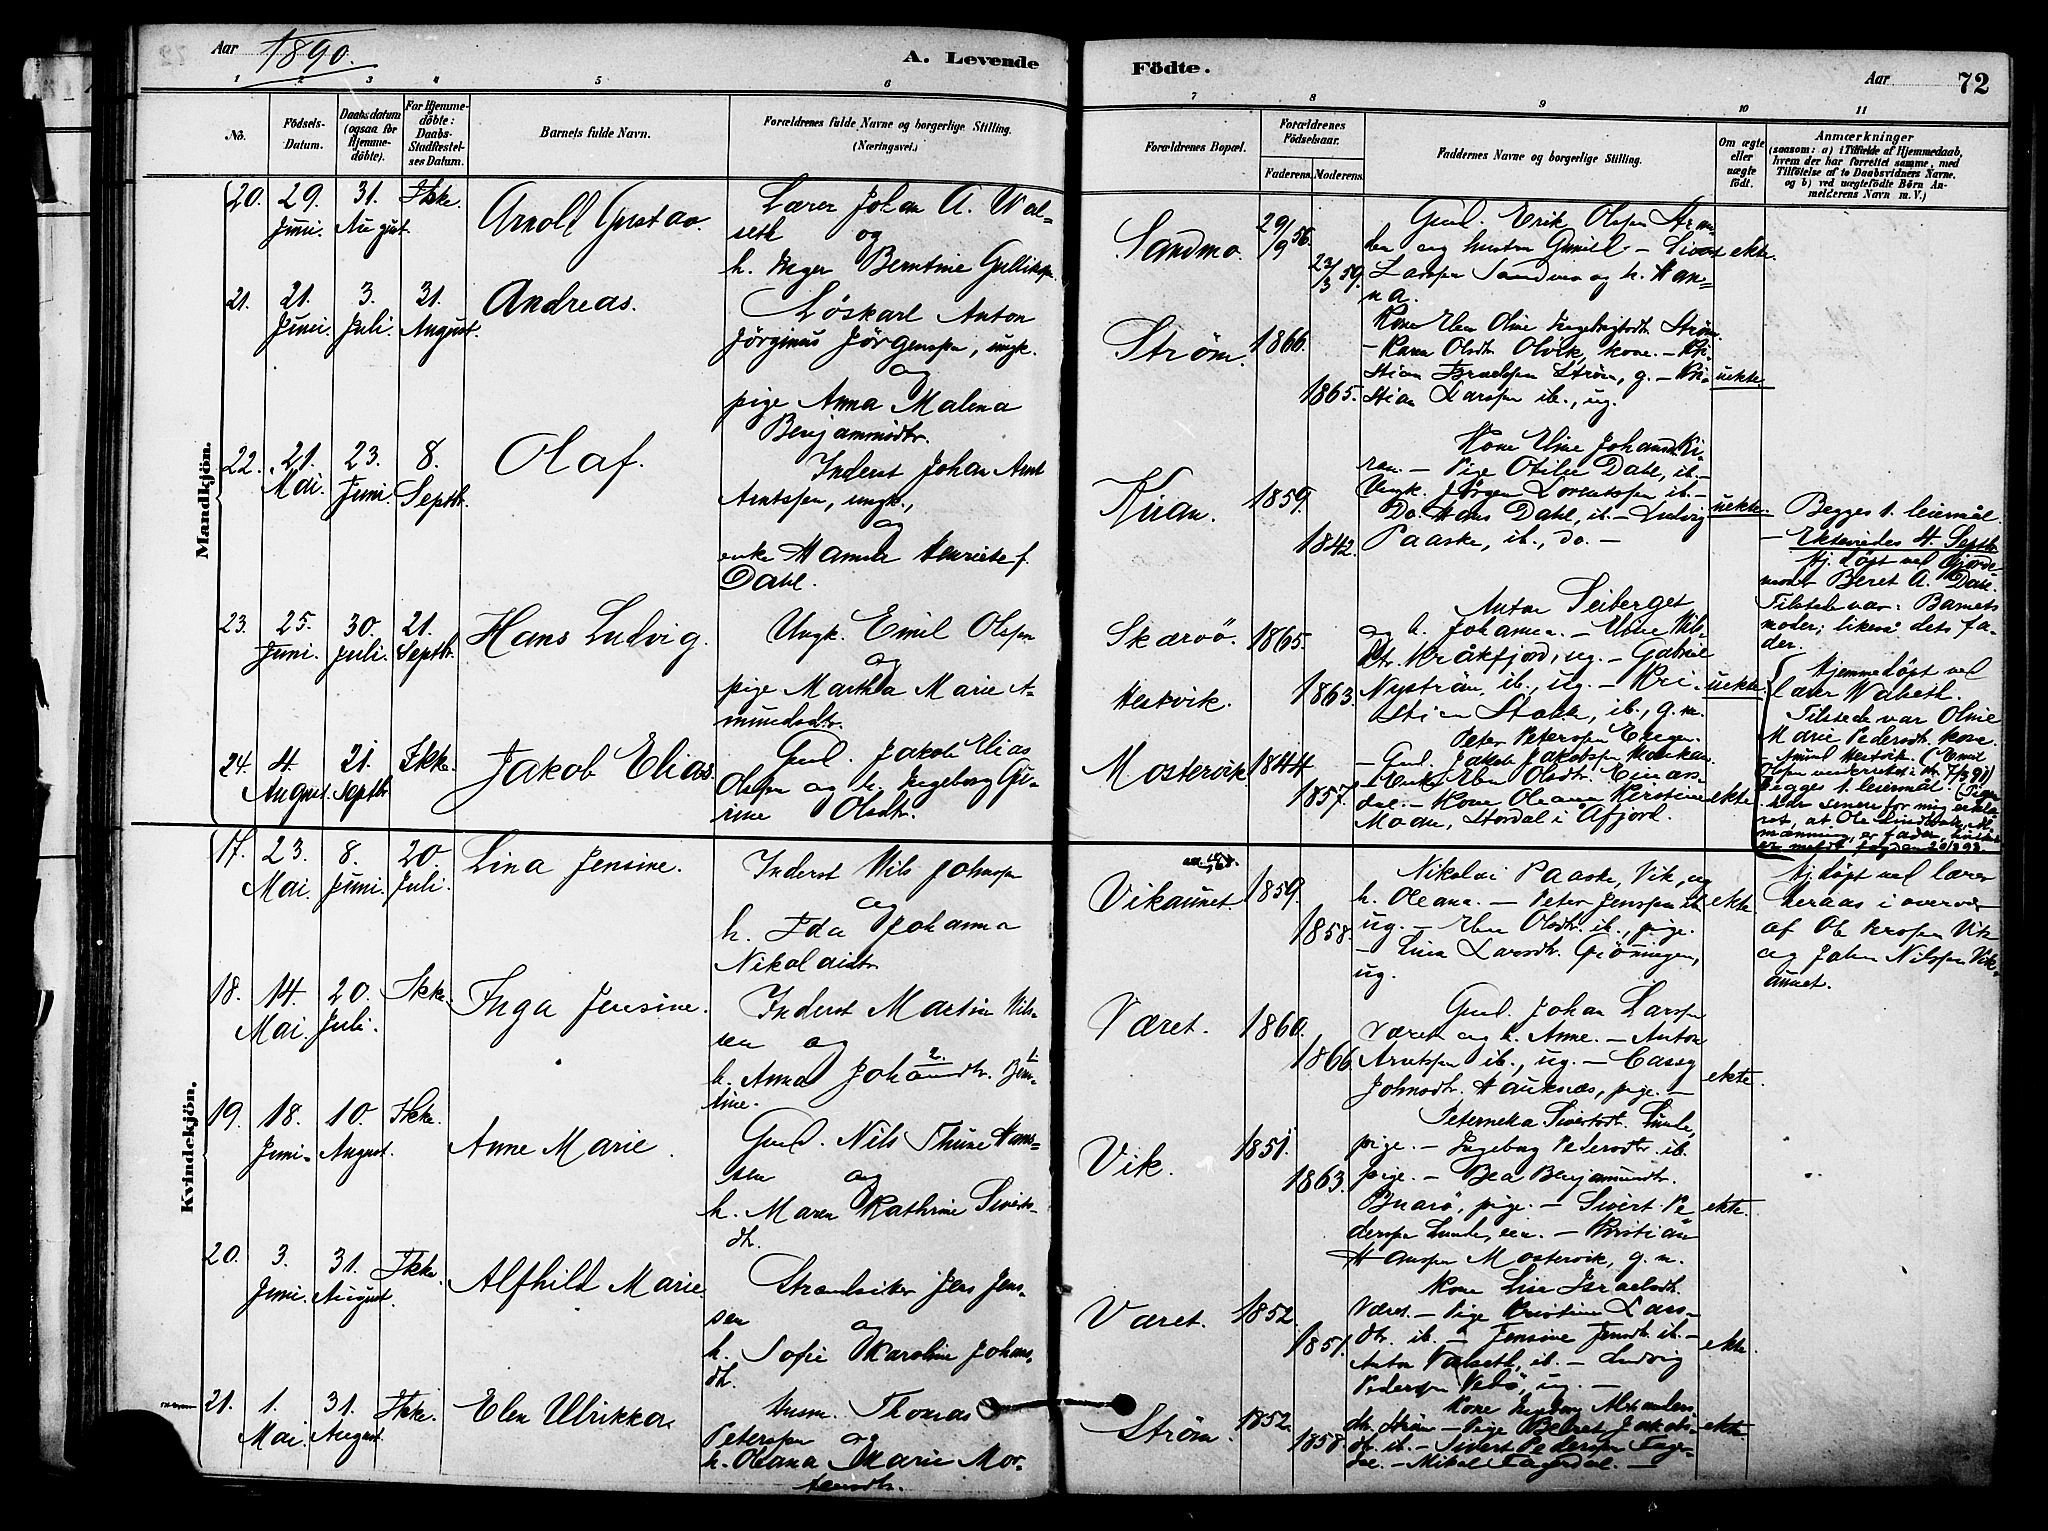 Aar 1890.
A. Levende
Födte.
Aar 72
1 2 3 4 5 6 7 8 9 10 11
No.
Födsels-Datum.
Daabsdatum (ogsaa for Hjemmedöbte).
For Hjemmedöbte: Daabs-Stadfæstelses Datum.
Barnets fulde Navn.
Forældrenes fulde Navne og borgerlige Stilling.
(Næringsvei.)
Forældrenes Bopæl.
Forældrenes Födselsaar.
Faderens. Moderens.
Faddernes Navne og borgerlige Stilling.
Om ægte eller uægte født.
Anmærkninger
(saasom: a) i Tilfælde af Hjemmedaab,
hvem der har forrettet samme, med
Tilföielse af to Daabsvidners Navne.
og b) ved uægtefödte Börn An-
melderens Navn m. V.)
Mandkjön.
20. 29. Juni. 31. August. Ikke. Arnold Gustav.
Lærer Johan A. Wal-
seth og
h. Inger Berntine Gulliksen
Sandmo. 29/9 56. 23/3 59.
Gmd. Erik Olsen
og hustru Gunild – Sivert
Larssen Sandmo og h. Han-
na.
ekte.
21. 21. Juni. 3. Juli. 31. August. Andreas.
Løskarl Anton
Jörginus Jörgenssen, ungk.
og
pige Anna Malena
Benjaminsdtr.
Strøm. 1866. 1865.
Kone Elen Oline Ingebrigtsdtr. Strøm.
– Karen Olsdtr. Olvik, kone. – Kri-
stian Israelssen Strøm, g. – Kri-
stian Larssen ib., ug.
uekte.
22. 21. Mai. 23. Juni. 8. Septbr. Olaf.
Inderst Johan Arnt
Arntssen, ungk.,
og
enke Hanna Henriette f.
Dahl.
Kiran. 1859. 1842.
Kone Eline Johansd. Ki-
ran. – Pige Otilie Dahl, ib. –
Ungk. Jörgen Lorentssen ib. –
Do. Hans Dahl, ib. – Ludvig
Paaske, ib., do. –
uekte.
Begges 1. leiermål.
– Ektevиedes 4. Septbr.
Hj. døpt ved Gjorde-
moder Beret A. Dahl.
Tilstede var: Barnets
moder; likeså dets fa-
der.
23. 25. Juni. 30. Juli. 21. Septbr. Hans Ludvig.
Ungk. Emil Olssen
og
pige Martha Marie A-
mundsdtr.
Skærvö. Hestvik. 1865. 1863.
Anton Seiberget
og h. Johanna. – Eline Nils-
dtr. Kråkfjord, ug. – Gabriel
Nyström, ib., ug. – Kri-
stian Stokke, ib., g. m.
uekte.
Hjemmedøpt ved
lærer Walseth.
Tilstede var Oline
Marie Pedersdtr. kone.
– Amund Hestvik. (Emil
Olssen underrettet 7/3 91)
Begges 1. leiermål.
24. 4. August. 21. Septbr. Ikke. Jakob Elias.
Gmd. Jakob Elias
Olssen og h. Ingeborg Gu-
rine Olsdtr.
Mostervik. 1844 1857.
Peter Peterssen
– Gmd. Jakob Jakobssen
– Enke Elen Olsdtr. Einars-
dal. – Kone Oleana Kirstine
Moan, Stordal i Afjord.
ekte.
Kvindekjön.
17. 23. Mai. 8. Juni. 20. Juli. Lina Jensine.
Inderst Nils Johnssen
og
h. Ida Johanna
Nikolaidtr.
Vikaunet. 1859. 1858.
Nikolai Paaske, Vik, og
h. Oleana. – Peter Jenssen ib.
ug. – Elen Olsdtr. ib., pige.
– Lina Larsdtr. Grönningen,
ug.
ekte.
Hj. døpt ved lærer
Heraas i overvær
af Ole Krossen Vik
og Johan Nilssen Vik-
aunet.
18. 14. Mai. 20. Juli. Ikke. Inga Jensine.
Inderst Martin Nils-
sen og
h. Anna Johansdtr. Ben-
tine.
Været. 1860. 1866.
Gmd. Johan Larssen
Været og h. Anne. – Anton
Arntssen ib., ug. – Cassy
Johnsdtr. Hauknæs, pige. –
ekte.
19. 18. Juni. 10. August. Ikke. Anne Marie.
Gmd. Nils Thune Hans-
sen og
h. Maren Kathrine Siverts-
dtr.
Vik. 1851. 1863.
Peternella Sivertsdtr. Lunde,
pige. – Ingeborg Pedersdtr. ib.
pige. – Bea Benjaminsdtr.
Buarö, pige. – Sivert Pe-
derssen Lunde, – Kristian
Hanssen Mostervik, g. m.
ekte.
20. 3. Juni. 31. August. Ikke. Alfhild Marie
Strandsitter Jens Jens-
sen og
h. Sofie Karoline Johans-
dtr.
Været. 1852. 1851.
Kone Lise Israelsdtr.
Været. – Pige Kristine Lars-
dtr. ib. – Jensine Jensdtr. ib. –
Anton Valseth, ib. – Ludvig
Pederssen Vebö, ug. –
ekte.
21. 1. Mai. 31. August. Ikke. Elen Ulrikka.
Husm. Thomas
Peterssen og
h. Oleana Marie Mor-
tensdtr.
Strøm. 1852. 1858.
Kone Ingeborg Alexanders-
dtr. Strøm – Pige Beret Jakobs-
dtr. ib. – Sivert Pederssen Fager-
dal. – Mikal Fagerdal. –
ekte.